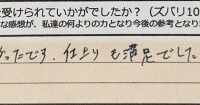 を受けられていかがでしたか？（ズバリ10
な感想が、私達の何よりの力となり今後の参考となりま
ったです。仕上りも満足でした